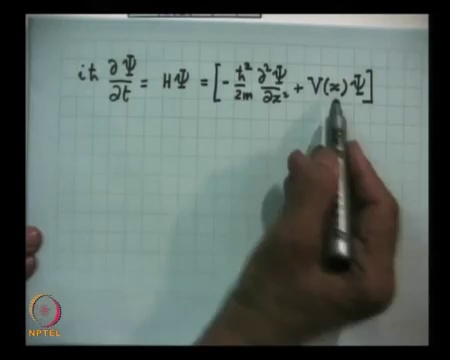 iħ ∂Ψ/∂t = HΨ = [-ħ²/2m ∂²Ψ/∂x² + V(x)Ψ]
NPTEL